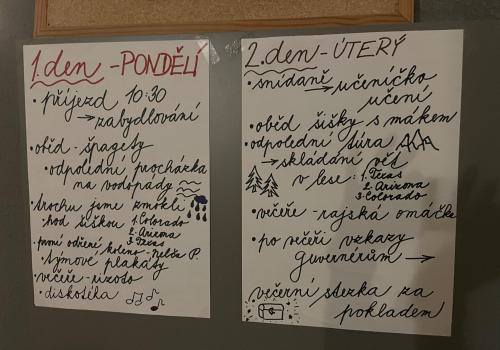 1. den - PONDĚLÍ
• příjezd 10:30
→ zabydlování
• oběd - špagety
• odpolední procházka
na vodopády
• trochu jsme zmokli
• hod šiškou 1. Colorado
2. Arizona
3. Texas
• první odřené koleno - Nelča P.
• týmové plakáty
• večeře - rizoto
• diskotéka
2. den - ÚTERÝ
• snídaně
→ učeníčko
učení
• oběd šišky s mákem
• odpolední túra
→ skládání vět
v lese: 1. Texas
2. Arizona
3. Colorado
• večeře - rajská omáčka
• po večeři vzkazy
guvernérům →
večerní stezka za
pokladem